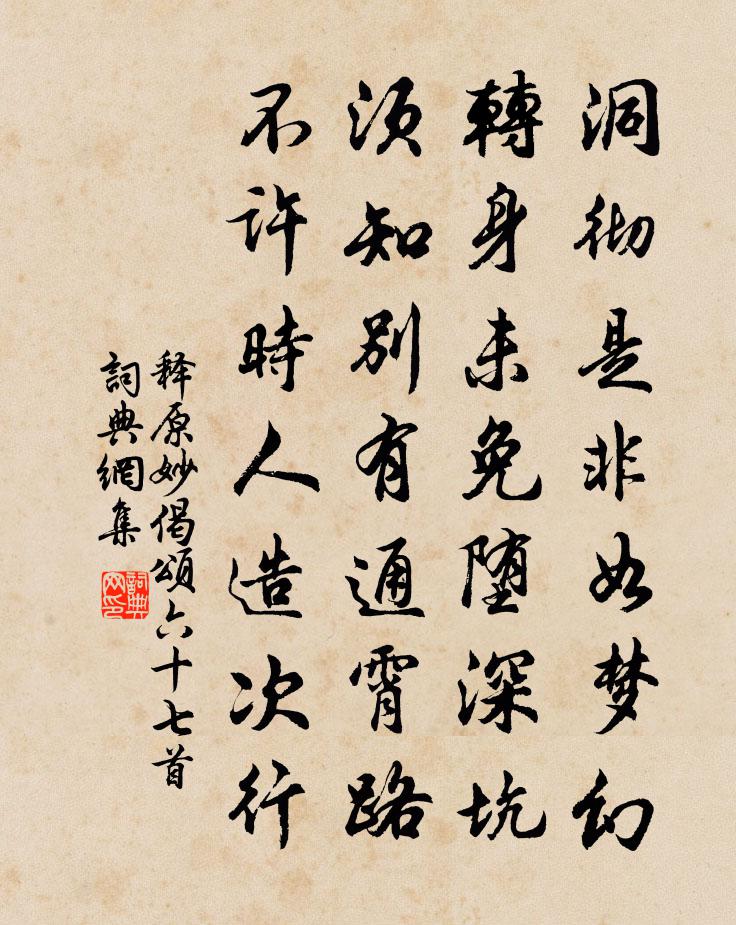 洞彻是非如梦幻
轉身未免堕深坑
须知别有通霄路
不许時人造次行
释原妙偈頌六十七首
詞典網集
詞典网印